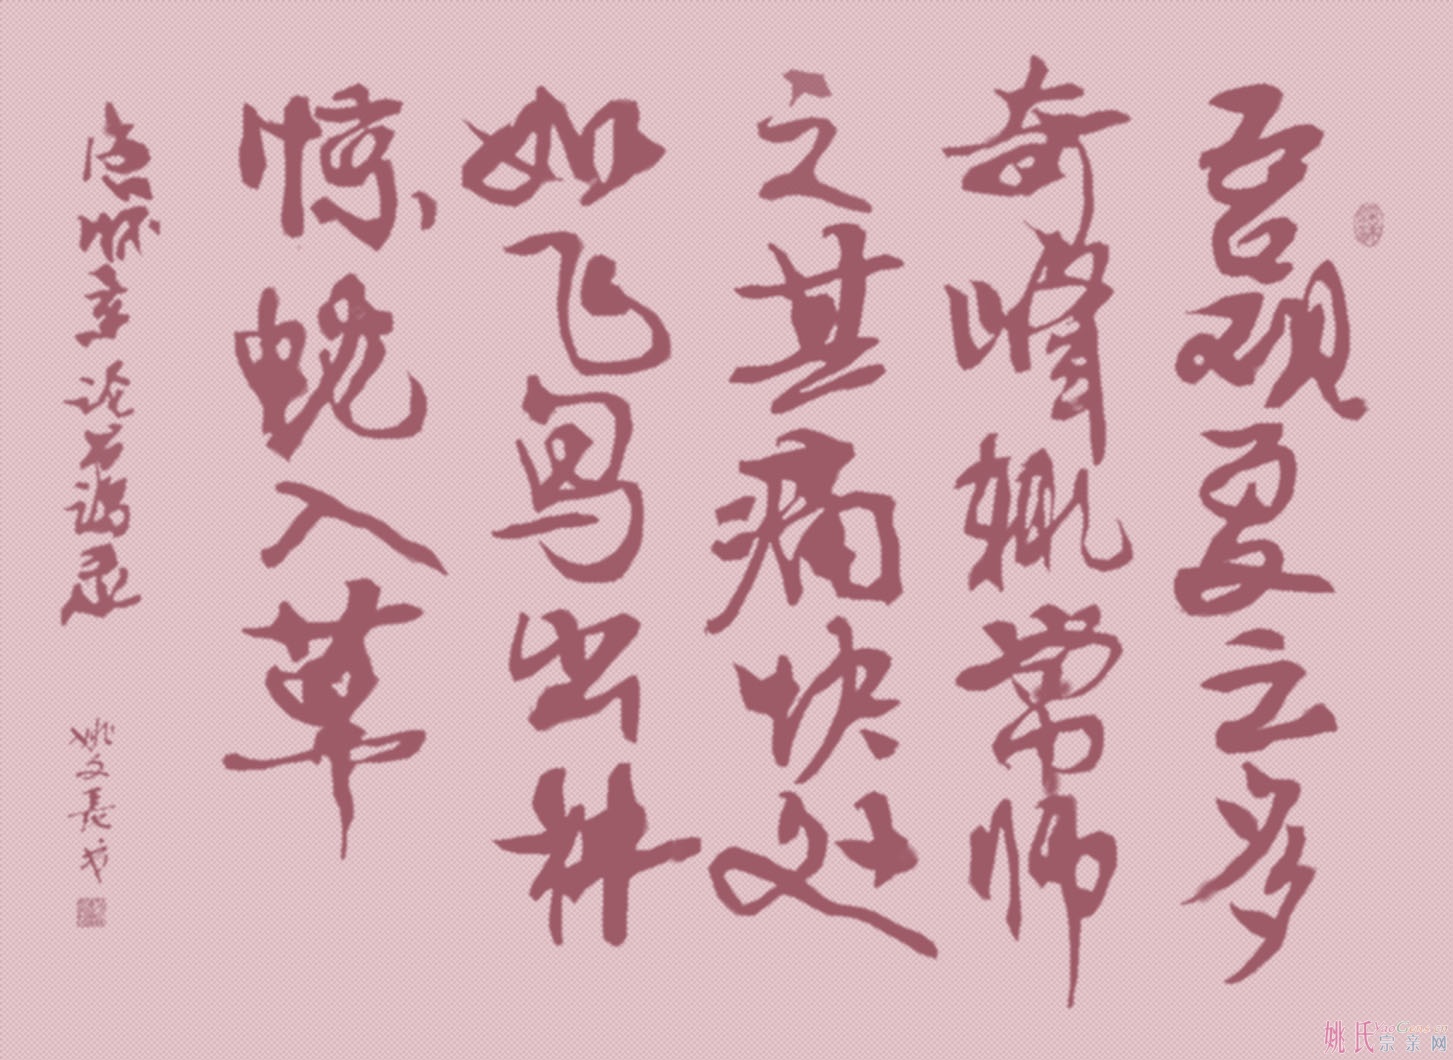 吾观夏云多
奇峰辄常师
之其痛快处
如飞鸟出林
惊蛇入草
唐怀素论书语录 姚文長书
姚氏宗亲网